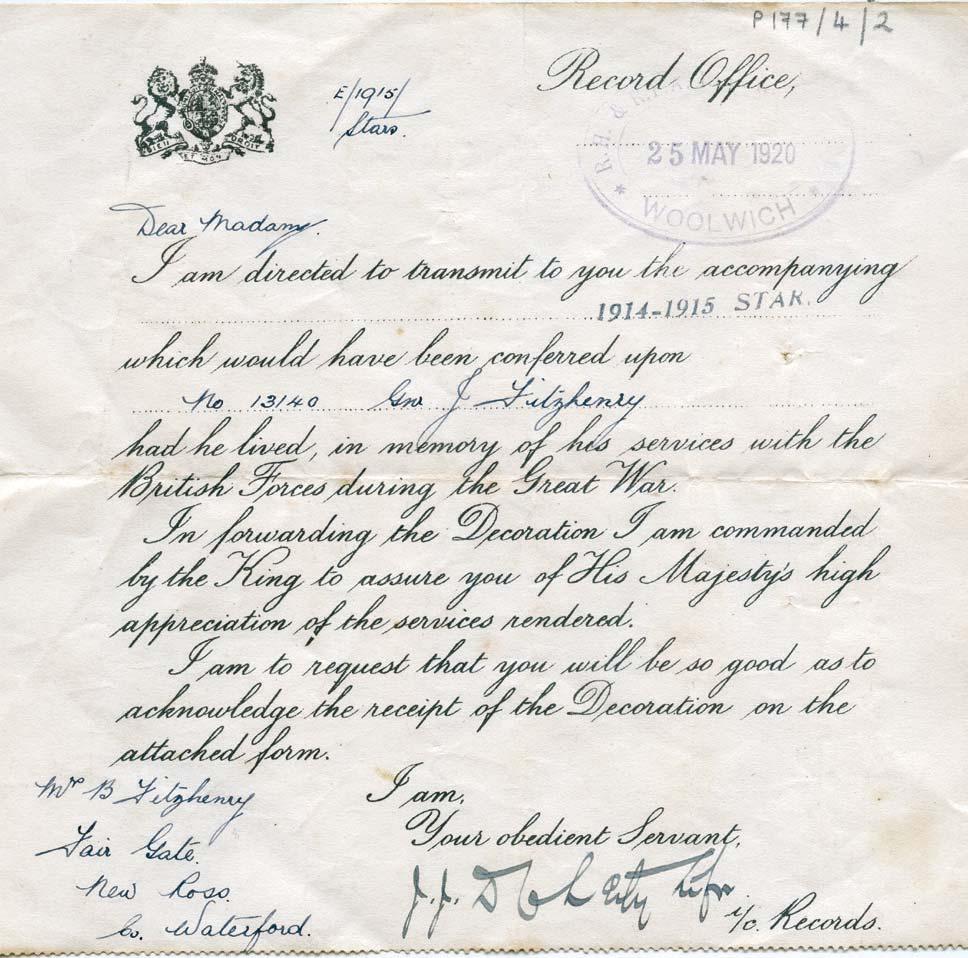 P177/4/2
E/1915/
Stars.
Record Office,
R.H. &
25 MAY 1920
WOOLWICH
DIEU ET MON DROIT
Dear Madam,
I am directed to transmit to you the accompanying
1914-1915 STAR.
which would have been conferred upon
No 13140 Gnr J Fitzhenry
had he lived, in memory of his services with the
British Forces during the Great War.
In forwarding the Decoration I am commanded
by the King to assure you of His Majesty's high
appreciation of the services rendered.
I am to request that you will be so good as to
acknowledge the receipt of the Decoration on the
attached form.
I am,
Your obedient Servant,
J.J.
i/c. Records.
Mrs B Fitzhenry
Fair Gate.
New Ross.
Co. Waterford.